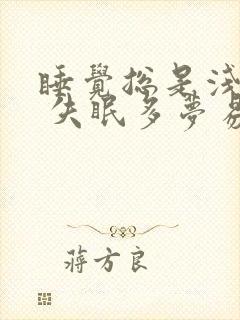 睡覺總是淺
失眠多夢易
蔣方良